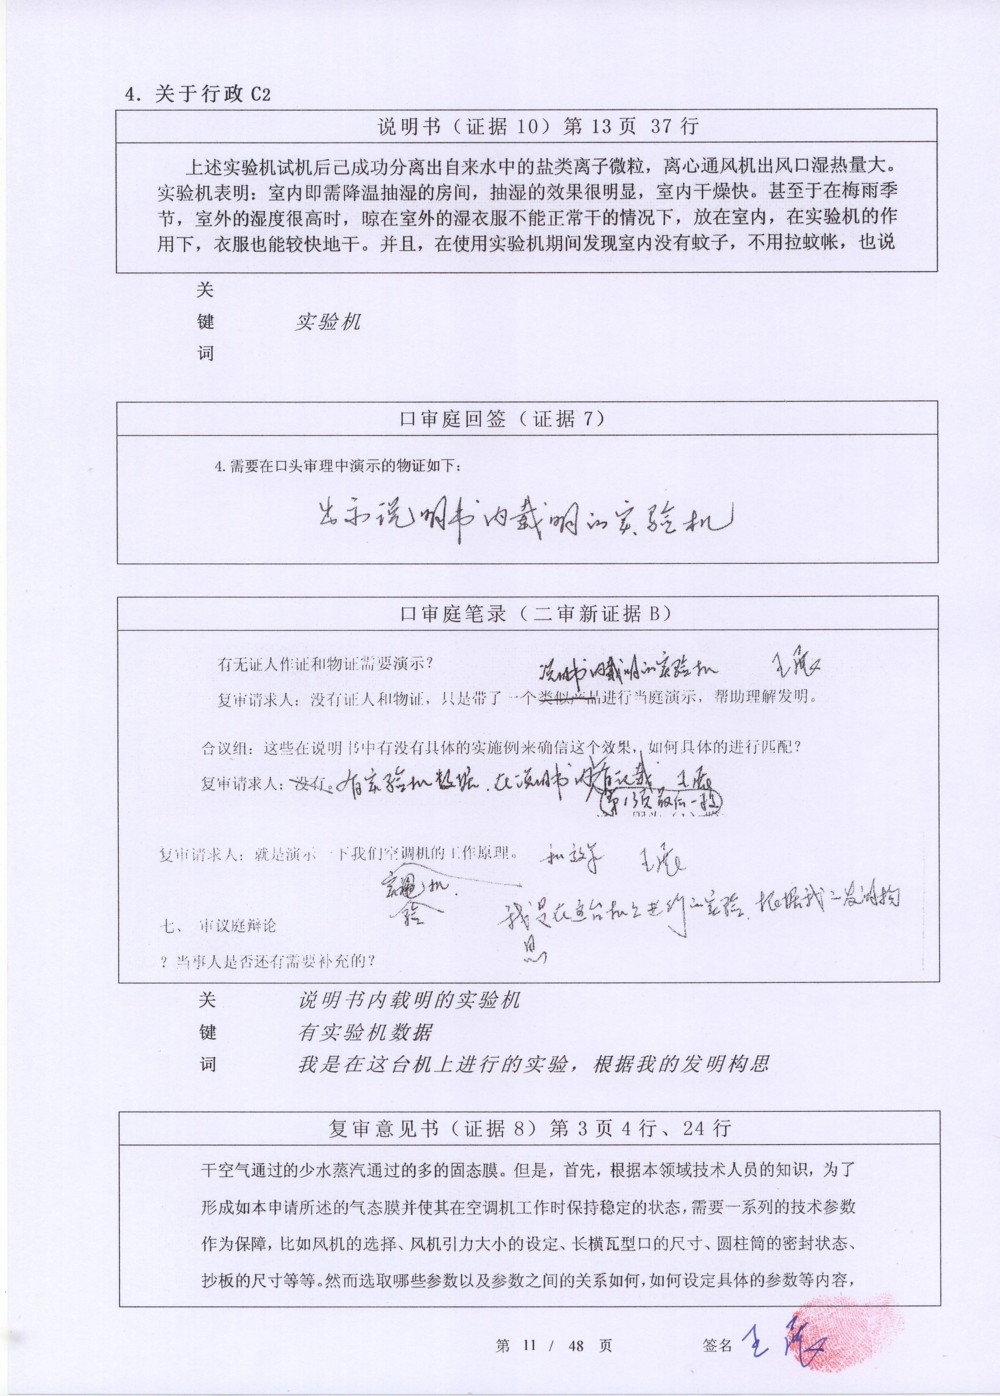 4. 关于行政 C2
说明书（证据 10）第 13 页 37 行
上述实验机试机后己成功分离出自来水中的盐类离子微粒，离心通风机出风口湿热量大。
实验机表明：室内即需降温抽湿的房间，抽湿的效果很明显，室内干燥快。甚至于在梅雨季
节，室外的湿度很高时，晾在室外的湿衣服不能正常干的情况下，放在室内，在实验机的作
用下，衣服也能较快地干。并且，在使用实验机期间发现室内没有蚊子，不用拉蚊帐，也说
关
键 实验机
词
口审庭回签（证据 7）
4.需要在口头审理中演示的物证如下：
出示说明书内载明的实验机
口审庭笔录（二审新证据 B）
有无证人作证和物证需要演示？
说明书内载明的实验机
复审请求人：没有证人和物证，只是带了一个类似产品进行当庭演示，帮助理解发明。
合议组：这些在说明书中有没有具体的实施例来确信这个效果，如何具体的进行匹配？
复审请求人：没有。有实验机数据，在说明书内有记载
第13页最后一段
复审请求人：就是演示一下我们空调机的工作原理。和效果
实验机
我是在这台机上进行的实验，根据我的发明构
思
七、 审议庭辩论
？当事人是否还有需要补充的？
关 说明书内载明的实验机
键 有实验机数据
词 我是在这台机上进行的实验，根据我的发明构思
复审意见书（证据 8）第 3 页 4 行、24 行
干空气通过的少水蒸汽通过的多的固态膜。但是，首先，根据本领域技术人员的知识，为了
形成如本申请所述的气态膜并使其在空调机工作时保持稳定的状态，需要一系列的技术参数
作为保障，比如风机的选择、风机引力大小的设定、长横瓦型口的尺寸、圆柱筒的密封状态、
抄板的尺寸等等。然而选取哪些参数以及参数之间的关系如何，如何设定具体的参数等内容，
第 11 / 48 页 签名